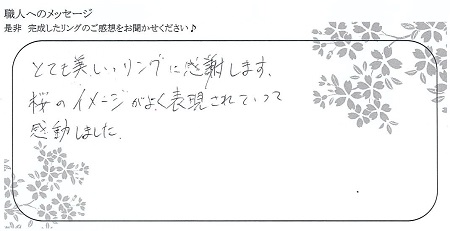 職人へのメッセージ
是非 完成したリングのご感想をお聞かせください♪
とても美しいリングに感謝します。
桜のイメージがよく表現されていて
感動しました。